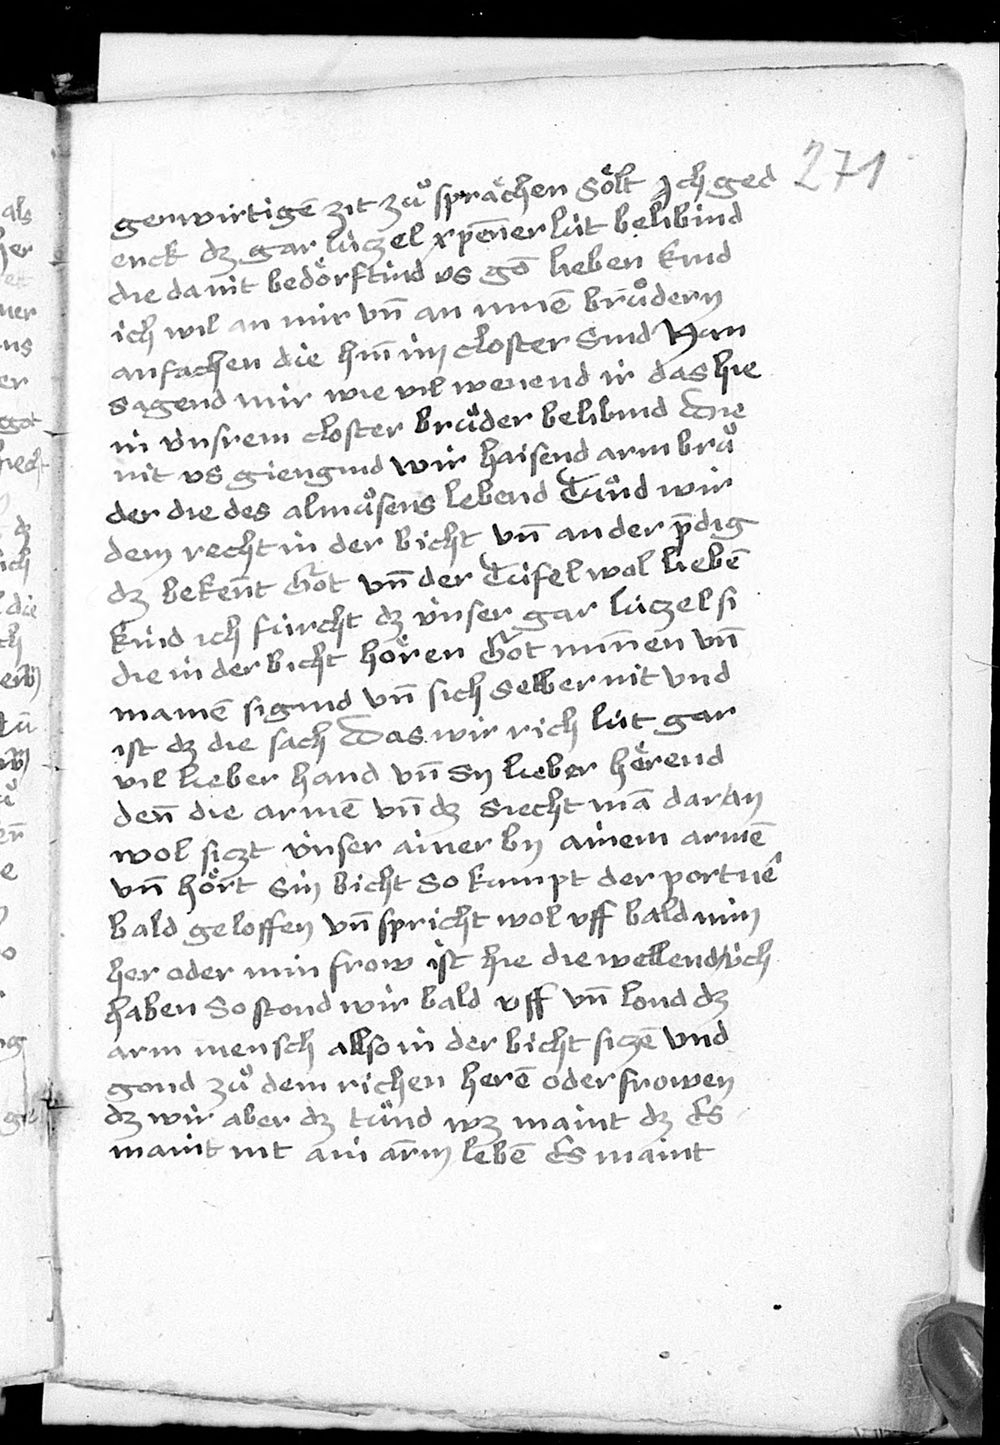 271
genwirtigē zit zuͦ spraͤchen soͤlt Jch ged
enck dz gar lúczel xpēner lút belibind
die da nit bedoͤrftind vs gō lieben kind
ich wil an mir vn̄ an minē bruͦdern
anfachen die hin̄ im closter sind Nun
sagend mir wie vil wenend ir das hie
in v́nsrem closter bruͤder belibind Die
nit vs giengind wir haisend arm bruͦ
der die des almuͦsens lebend Tuͤnd wir
dem recht in der bicht vn̄ an der p̄dig
dz beken̄t Got vn̄ der Túfel wol liebē
kind ich fúrcht dz v́nser gar lúczel si
die in der bicht hoͤren Got min̄en vn̄
mainē sigind vn̄ sich selber nit vnd
ist dz die sach Das wir rich lút gar
vil lieber hand vn̄ sy lieber heͤrend
den̄ die armē vn̄ dz siecht mā daran
wol siczt v́nser ainer by ainem armē
vn̄ hoͤrt sin bicht so kumpt der portnē
bald geloffen vn̄ spricht wol vff bald min
her oder min frow ist hie die wellend v́ch
haben So stond wir bald vff vn̄ lond dz
arm mensch allso in der bicht siczē vnd
gond zuͦ dem richen herē oder frowen
dz wir aber dz tuͤnd wz maint dz Es
maint nit ain ar̄m lebē Es maint
als
her
ner
ns
er
got
dz
ich
die
ch
e
ge